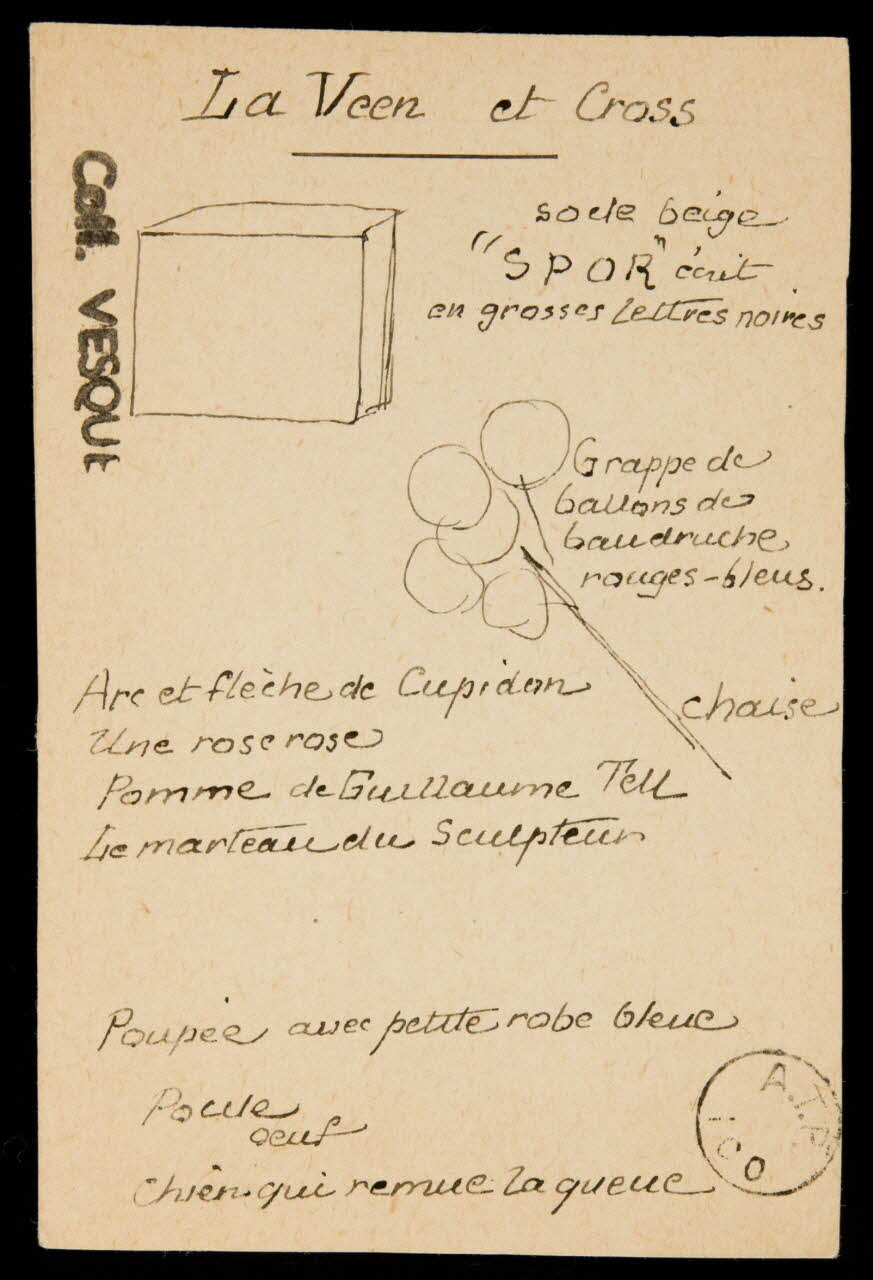 La Veen et Cross
Coll. VESQUE
socle beige
"SPOR" écrit
en grosses lettres noires
Grappe de
ballons de
baudruche
rouges-bleus.
Arc et flèche de Cupidon
chaise
Une rose rose
Pomme de Guillaume Tell
Le marteau du Sculpteur
Poupée avec petite robe bleue
Poule
oeuf
chien qui remue la queue
A.T.P.
ICO